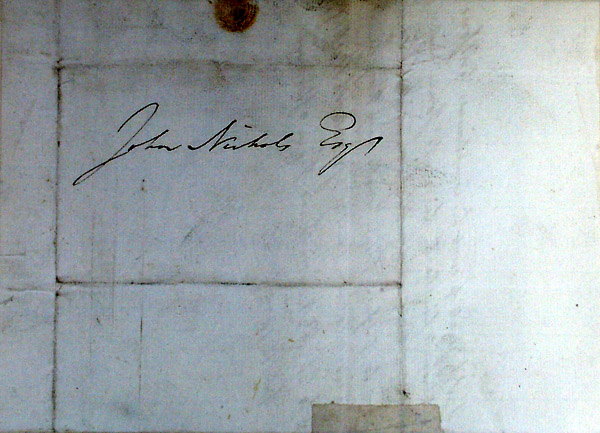 John Nichols Esqr